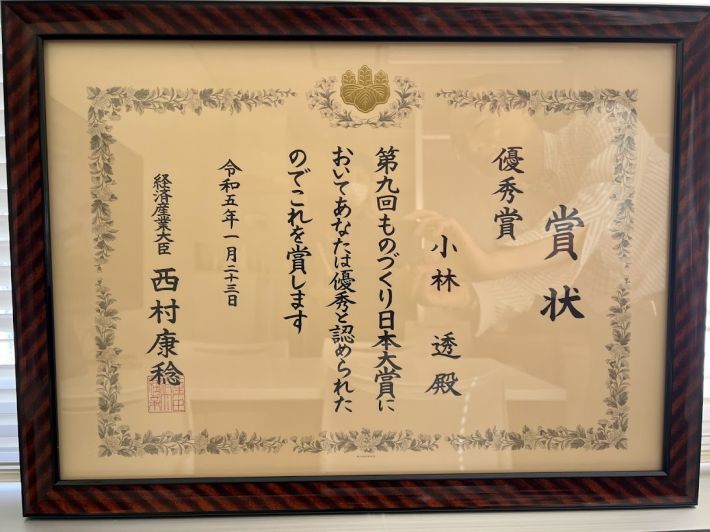 賞状
優秀賞
小林 透 殿
第九回ものづくり日本大賞に
おいてあなたは優秀と認められた
のでこれを賞します
令和五年一月二十三日
経済産業大臣 西村康稔